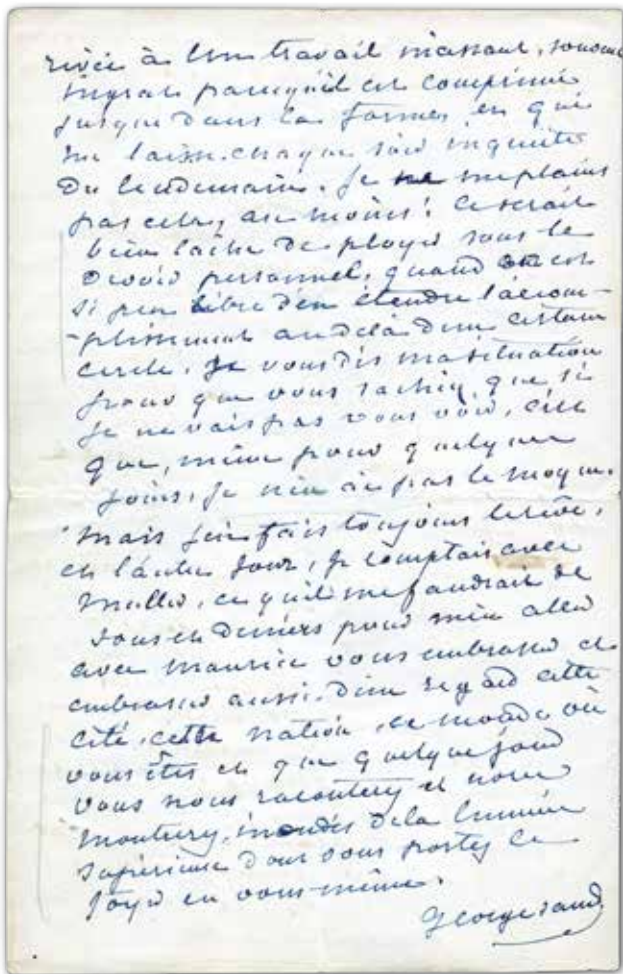 rivée à un travail incessant, souvent
ingrat parcequ'il est comprimé
jusque dans la forme, et qui
me laisse chaque soir inquiète
du lendemain. Je ne me plains
pas cela, au moins! ce serait
bien lâche de ployer sous le
devoir personnel, quand on est
si peu libre d'en étendre l'accom-
-plissement au delà d'un certain
cercle. Je vous dis ma situation
pour que vous sachiez que si
je ne vais pas vous voir, c'est
que, même pour quelques
jours, je n'en ai pas le moyen.
Mais j'en fais toujours le rêve,
et l'autre jour, je comptais avec
Muller, ce qu'il me faudrait de
sous et deniers pour m'en aller
avec Maurice vous embrasser et
embrasser aussi d'un regard cette
cité, cette nation, ce monde où
vous êtes et que quelque jour
vous nous raconterez et nous
montrerez, inondés de la lumière
supérieure dont vous portez le
foyer en vous-même.
George Sand